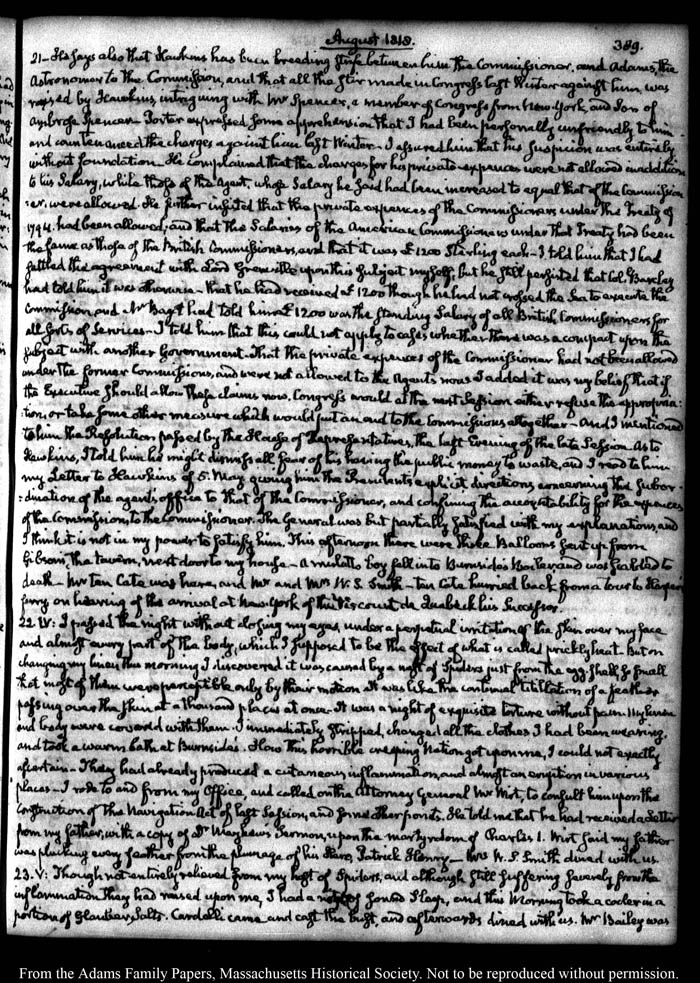 August 1818.
389.
21— He says also that Hawkins has been breeding strife between him the Commissioner, and Adams, the
Astronomer to the Commission, and that all the stir made in Congress last Winter against him, was
raised by Hawkins, intriguing with Mr Spencer, a member of Congress from New York, and Son of
Ambrose Spencer. Porter expressed some apprehension that I had been personally unfriendly to him
and countenanced the charges against him last Winter. I assured him that his suspicion was entirely
without foundation. He complained that the charges for his private expences were not allowed in addition
to his Salary, while those of the Agent, whose Salary he said had been increased to equal that of the Commission
:er, were allowed. He further insisted that the private expences of the Commissioners under the Treaty of
1794. had been allowed; and that the Salaries of the American Commissioners under that Treaty had been
the same as those of the British Commissioners, and that it was £1200 Sterling each— I told him that I had
settled the agreement with Lord Grenville upon this subject myself; but he still persisted that Col. Barclay
had told him it was otherwise— that he had received £1200 though he had not crossed the Sea to execute the
Commission, and Mr Bagot had told him £1200 was the standing Salary of all British Commissioners for
all sorts of Services— I told him that this could not apply to cases whether there was a compact upon the
subject with another Government. That the private expences of the Commissioner had not been allowed
under the former Commissions, and were not allowed to the Agents now. I added it was my belief that if
the Executive should allow these claims now, Congress would at the next Session either refuse the appropria:
:tion, or take some other measure which would put an end to the Commissions altogether— And I mentioned
to him the Resolution passed by the House of Representatives, the last Evening of the late Session. As to
Hawkins, I told him he might dismiss all fear of his having the public money to waste, and I read to him
my Letter to Hawkins of 5. May giving him the President's explicit directions concerning the subor:
:dination of the agents office to that of the Commissioner, and confining the accountability for the expences
of the Commission, to the Commissioner. The General was but partially satisfied with my explanations, and
I think it is not in my power to satisfy him. This afternoon there were three Balloons sent up from
Gibson, the tavern, next door to my house— a mulatto boy fell into Burnside's boiler and was scalded to
death— Mr ten Cate was here, and Mr and Mrs W. S. Smith— ten Cate hurried back from a tour to Harper's
ferry on hearing of the arrival at New-York of the Viscount de Quabeck his Successor.
22. IV: I passed the night without closing my eyes, under a perpetual irritation of the skin over my face
and almost every part of the body, which I supposed to be the effect of what is called prickly heat. But on
changing my linen this morning I discovered it was caused by a nest of Spiders just from the egg-shell, so small
that most of them were perceptible only by their motion. It was like the continual titillation of a feather
passing over the skin at a thousand places at once. It was a night of exquisite torture without pain. My linen
and body were covered with them. I immediately stripped, changed all the clothes I had been wearing,
and took a warm bath at Burnside's. How this horrible creeping Nation got upon me, I could not exactly
ascertain— They had already produced a cutaneous inflammation, and almost an eruption in various
places— I rode to and from my Office, and called on the Attorney General Mr Wirt, to consult him upon the
construction of the Navigation Act of last Session, and some other points. He told me that he had received a Letter
from my father, with a copy of Dr Mayhew's Sermon, upon the martyrdom of Charles 1. Wirt said my father
was plucking every feather from the plumage of his Hero, Patrick Henry— Mrs W. S. Smith dined with us.
23. V: Though not entirely relieved from my host of Spiders, and although still suffering severely from the
inflammation they had raised upon me, I had a night of sound sleep, and this Morning took a cooler in a
portion of Glauber Salts. Cardelli came and cast the bust, and afterwards dined with us. Mr Bailey was
From the Adams Family Papers, Massachusetts Historical Society. Not to be reproduced without permission.